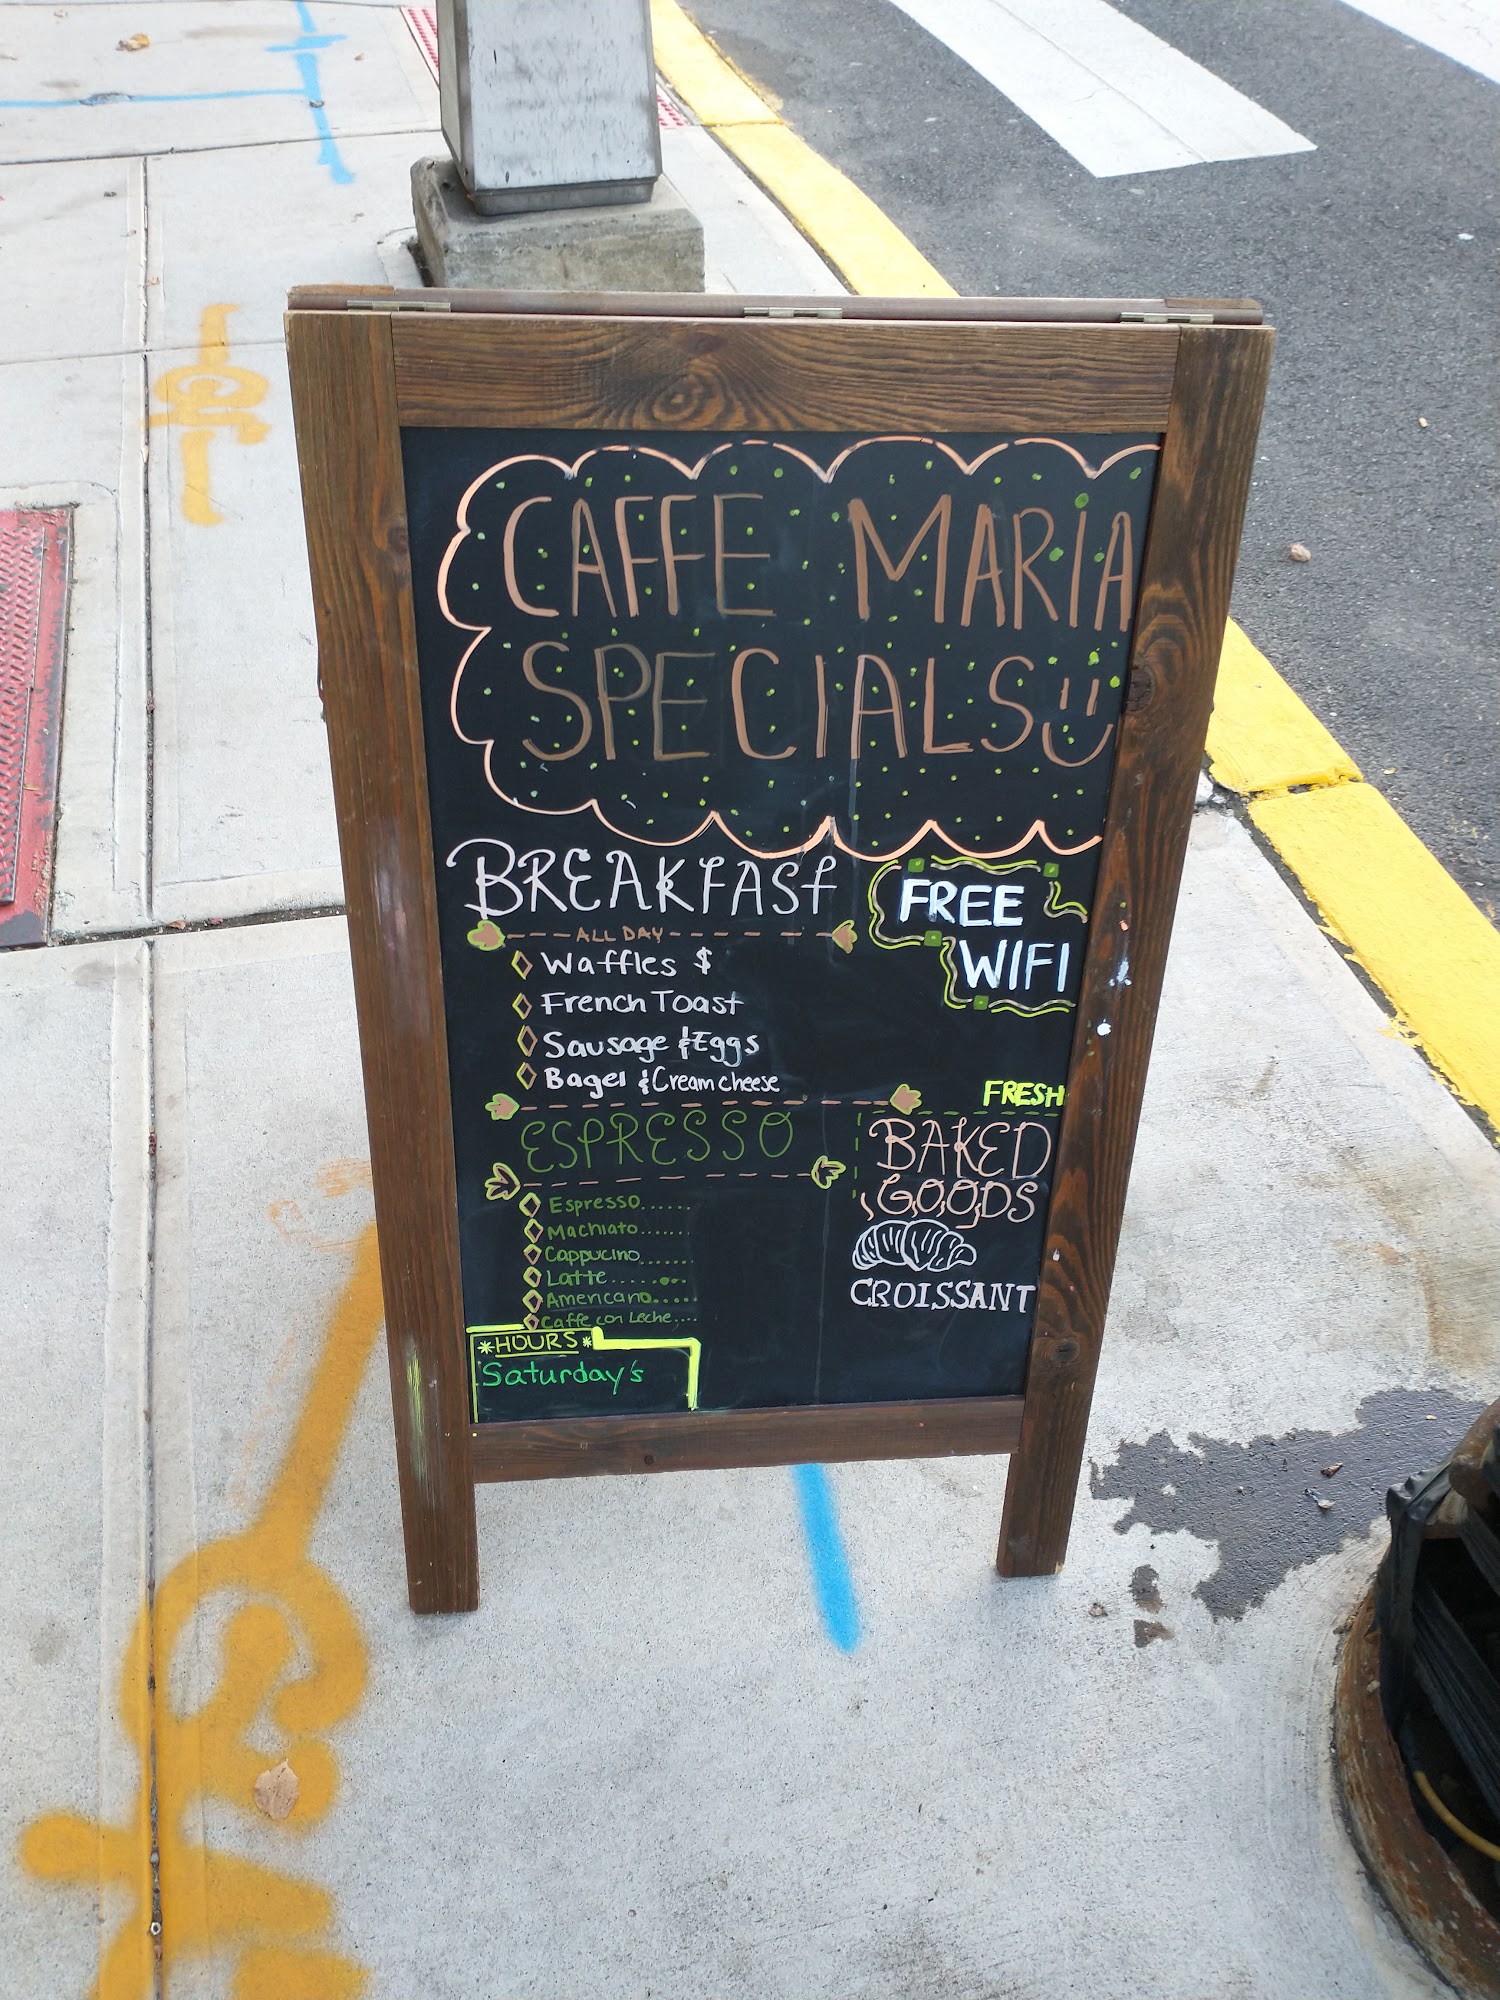 CAFFE MARIA
SPECIALS
BREAKFAST
ALL DAY
Waffles $
French Toast
Sausage & Eggs
Bagel & Cream cheese
FREE
WIFI
ESPRESSO
Espresso......
Machiato.......
Cappucino.......
Latte.........
Americano.....
Caffe con Leche....
FRESH
BAKED
GOODS
CROISSANT
*HOURS*
Saturday's